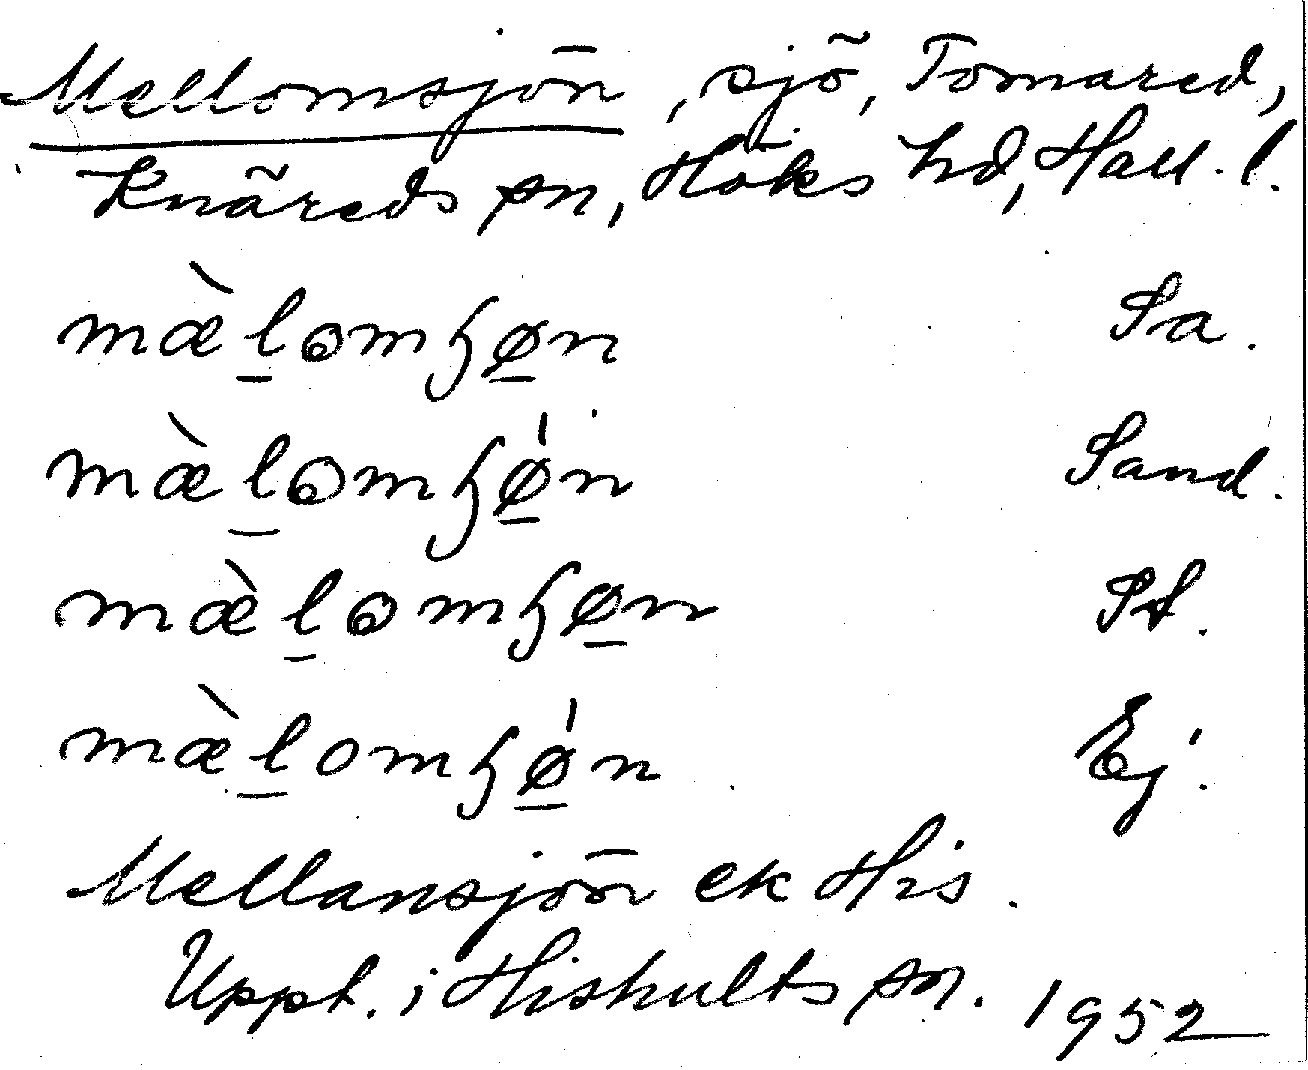 Mellomsjön, sjö, Tomared,
Knäreds sn, Höks hd, Hall. l.
mæ̀l̲ɷmɧø̲n Sa.
mæ̀l̲ɷmɧǿ̲n Sand.
mæ̀l̲ɷmɧø̲n St.
mæ̀l̲omɧǿ̲n Ej.
Mellansjön ek His.
Uppt. i Hishults sn. 1952